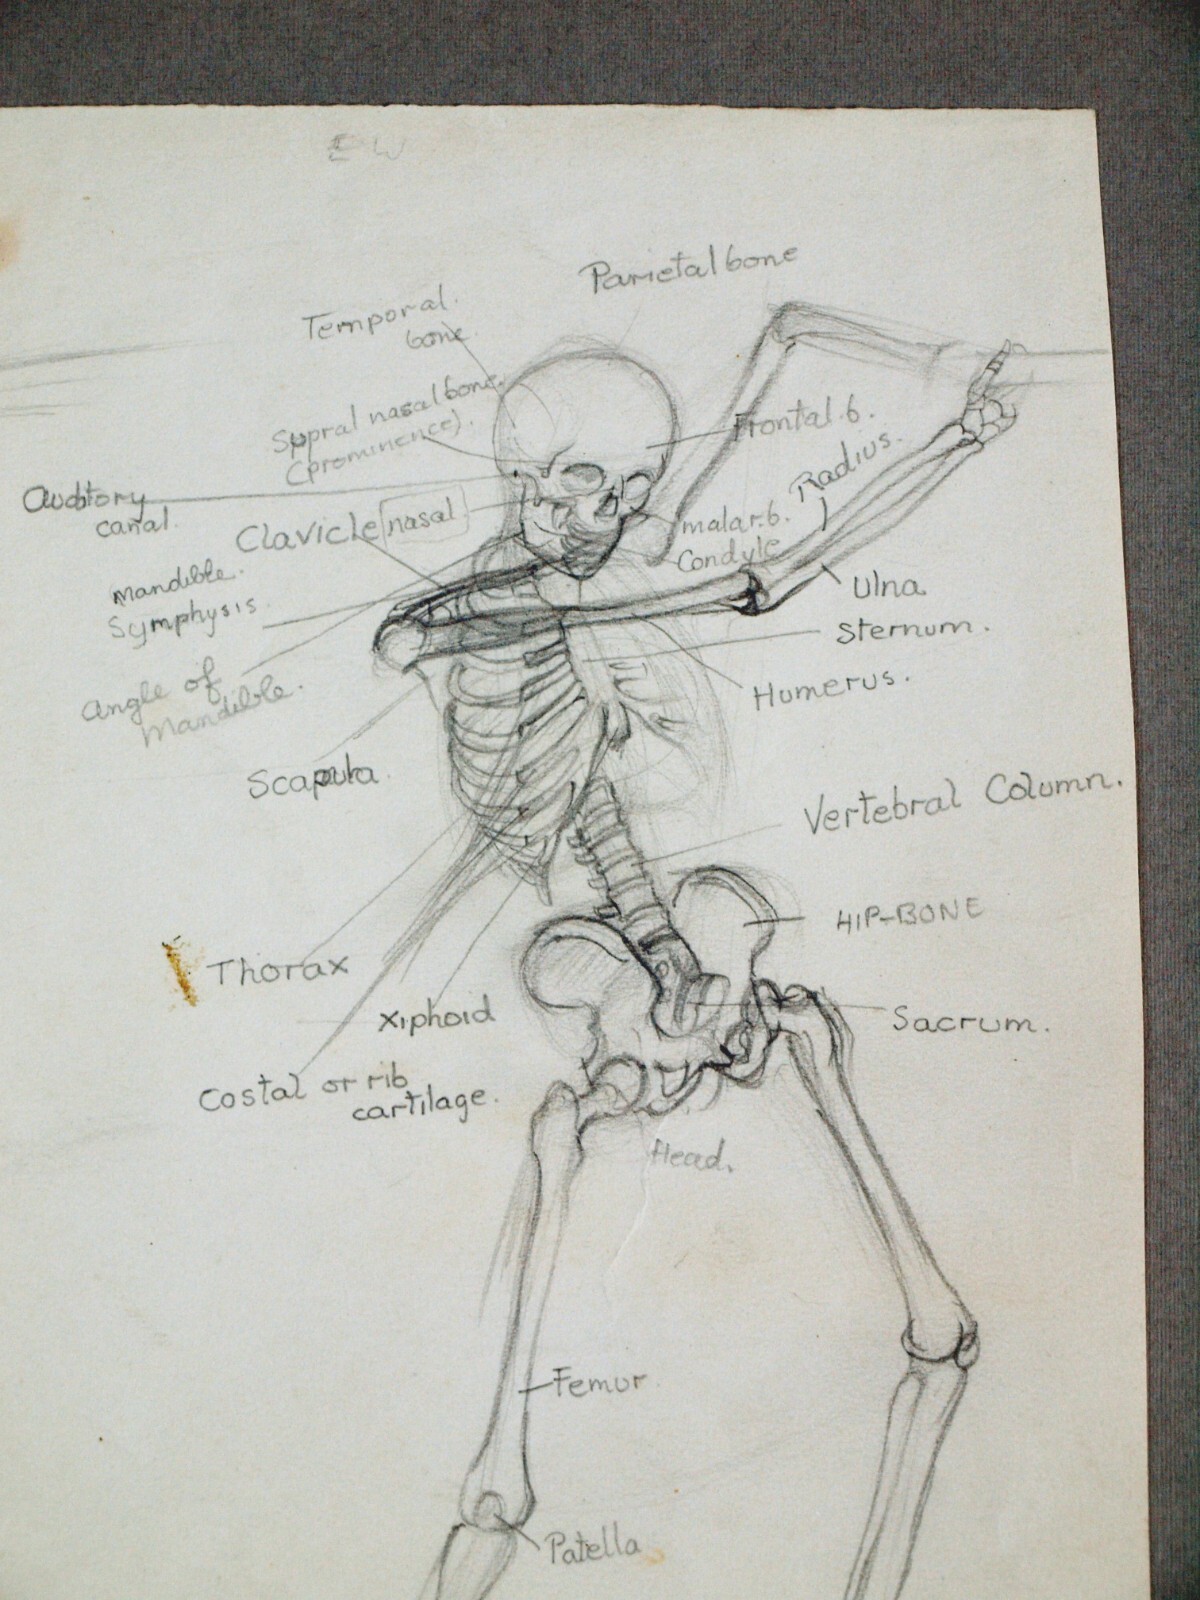 EW
Parietal bone
Temporal.
bone
Supral nasal bone.
(prominence).
Frontal.b.
Radius.
Auditory
canal.
Clavicle
nasal
malar.b.
Condyle
mandible.
Symphysis.
Ulna
Sternum.
Angle of
Mandible.
Humerus.
Scapula.
Vertebral Column.
HIP-BONE
Thorax
Xiphoid
Sacrum.
Costal or rib
cartilage.
Head.
Femur
Patella